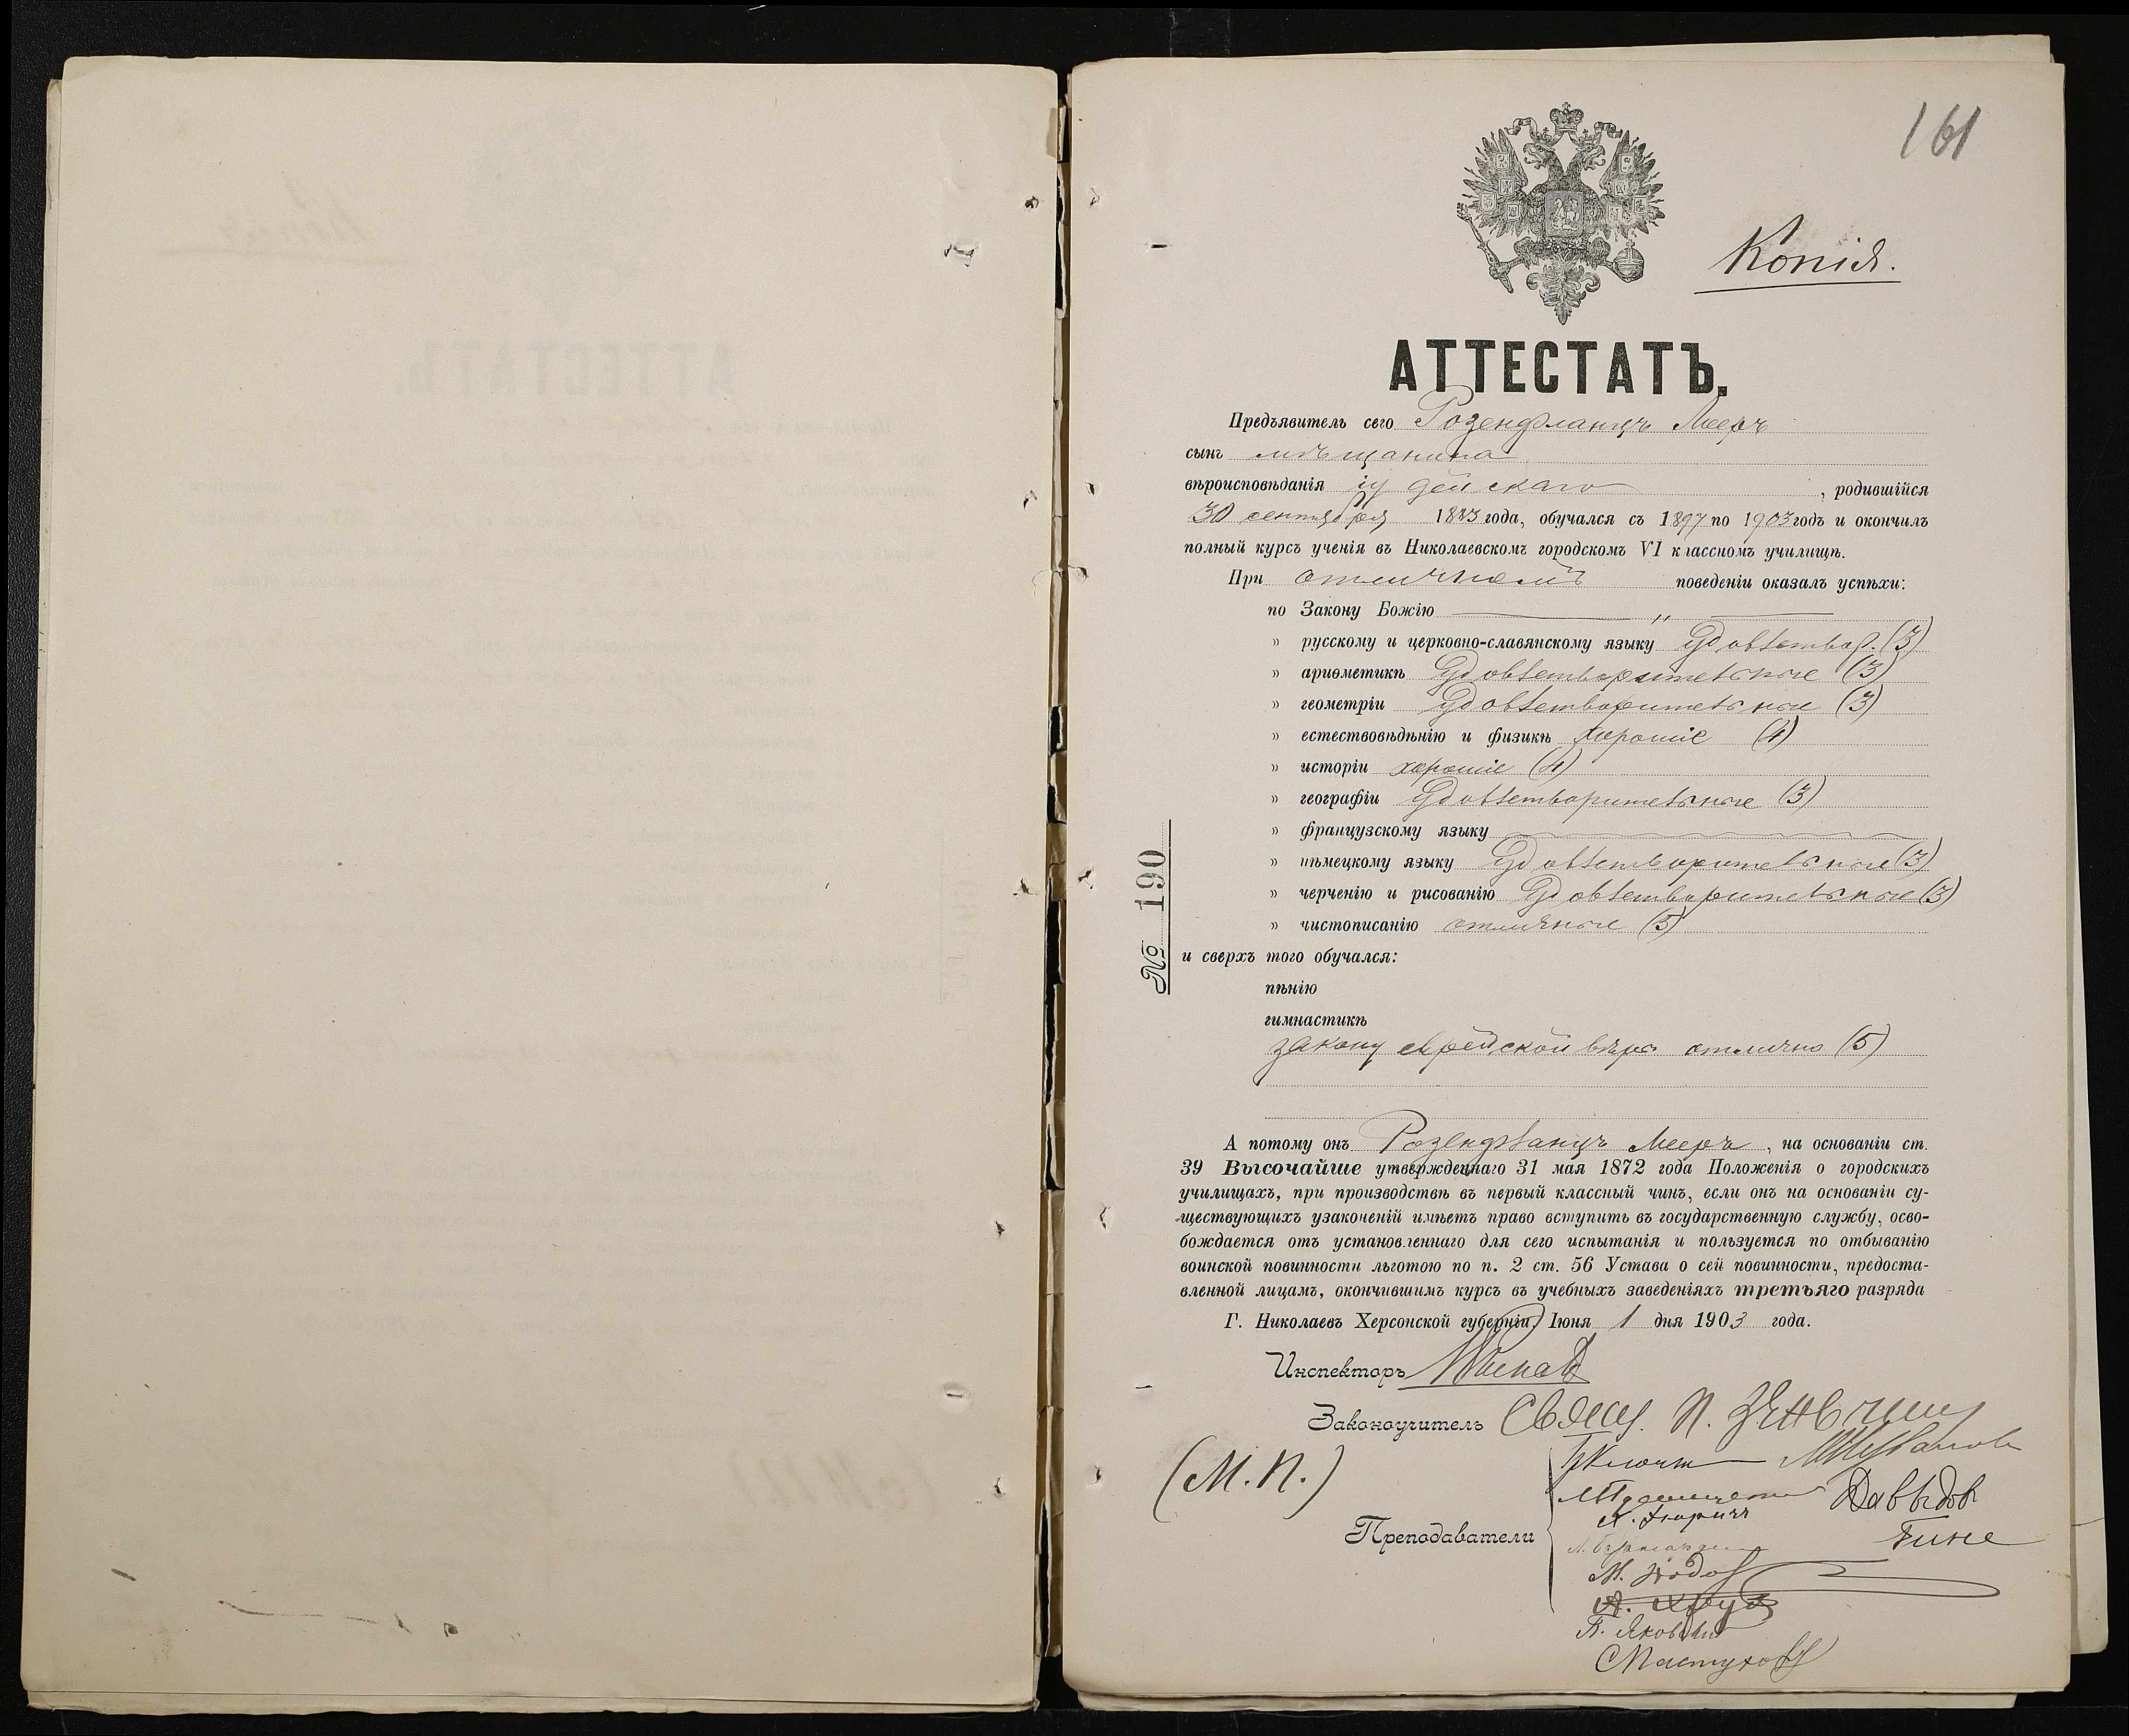 161
Копія.
АТТЕСТАТЪ.
Предъявитель сего Розенфланцъ Мееръ
сынъ мѣщанина
вѣроисповѣданія іудейскаго, родившійся
30 сентября 1883 года, обучался съ 1897 по 1903 годъ и окончилъ
полный курсъ ученія въ Николаевскомъ городскомъ VI классномъ училищѣ.
При отличномъ поведеніи оказалъ успѣхи:
по Закону Божію „
» русскому и церковно-славянскому языку Удовлетвор. (3)
» ариѳметикѣ Удовлетворительные (3)
» геометріи Удовлетворительные (3)
» естествовѣдѣнію и физикѣ хорошіе (4)
» исторіи хорошіе (4)
» географіи Удовлетворительные (3)
» французскому языку
» нѣмецкому языку Удовлетворительные (3)
» черченію и рисованію Удовлетворительные (3)
» чистописанію отличные (5)
№ 190
и сверхъ того обучался:
пѣнію
гимнастикѣ
закону еврейской вѣры отлично (5)
А потому онъ Розенфланцъ Мееръ, на основаніи ст.
39 Высочайше утвержденнаго 31 мая 1872 года Положенія о городскихъ
училищахъ, при производствѣ въ первый классный чинъ, если онъ на основаніи су-
ществующихъ узаконеній имѣетъ право вступить въ государственную службу, осво-
бождается отъ установленнаго для сего испытанія и пользуется по отбыванію
воинской повинности льготою по п. 2 ст. 56 Устава о сей повинности, предоста-
вленной лицамъ, окончившимъ курсъ въ учебныхъ заведеніяхъ третьяго разряда
Г. Николаевъ Херсонской губерніи, Іюня 1 дня 1903 года.
Инспекторъ
Законоучитель Свящ. П.
(М. П.)
Преподаватели
Давыдов